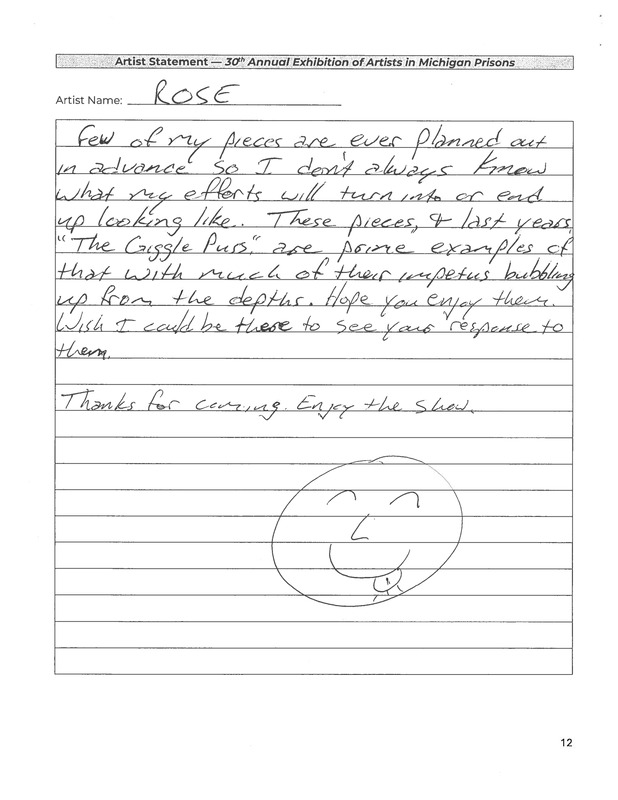 Artist Statement — 30th Annual Exhibition of Artists in Michigan Prisons
Artist Name: ROSE
Few of my pieces are ever planned out
in advance so I don't always know
what my efforts will turn into or end
up looking like. These pieces, & last years,
"The Giggle Purs," are prime examples of
that with much of their impetus bubbling
up from the depths. Hope you enjoy them.
Wish I could be there to see your response to
them.
Thanks for coming. Enjoy the show.
12